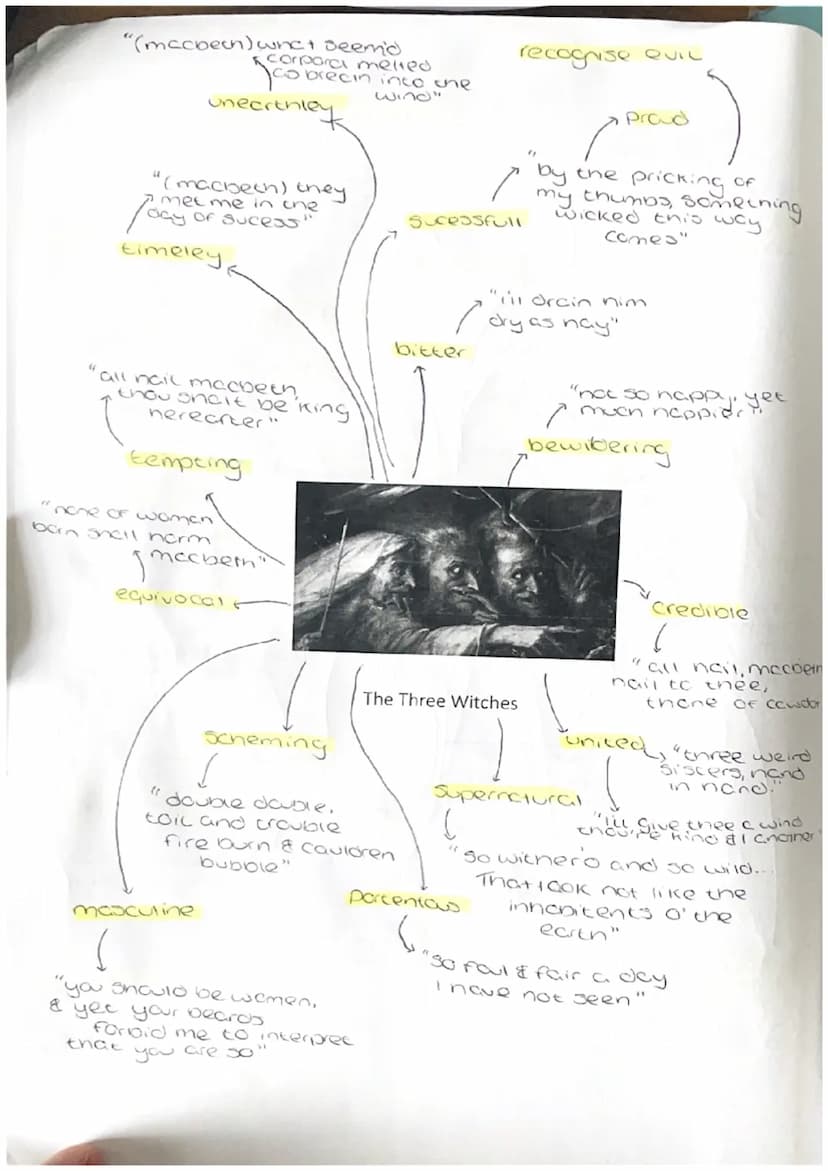 "(macbeth) what seem'd
corporal melted
as breath into the
wind"
unearthley
recognise evil
proud
"by the pricking of
my thumbs, something
wicked this way
comes"
sucessfull
"(macbeth) they
met me in the
day of sucess"
timeley
"i'll drain him
dry as hay"
bitter
"all hail macbeth,
thou shalt be king
hereafter"
tempting
"not so happy, yet
much happier"
bewildering
"none of women
born shall harm
macbeth"
equivocal
credible
"all hail, macbeth
hail to thee,
thane of cawdor
The Three Witches
scheming
"double double,
toil and trouble
fire burn & cauldren
bubble"
united
"three weird
sisters, hand
in hand"
"i'll give thee a wind
thou're kind & I another"
supernatural
"so wither'd and so wild...
That look not like the
inhabitents o' the
earth"
masculine
"you should be women,
& yet your beards
forbid me to interpret
that you are so"
portentous
"so foul & fair a day
I have not seen"